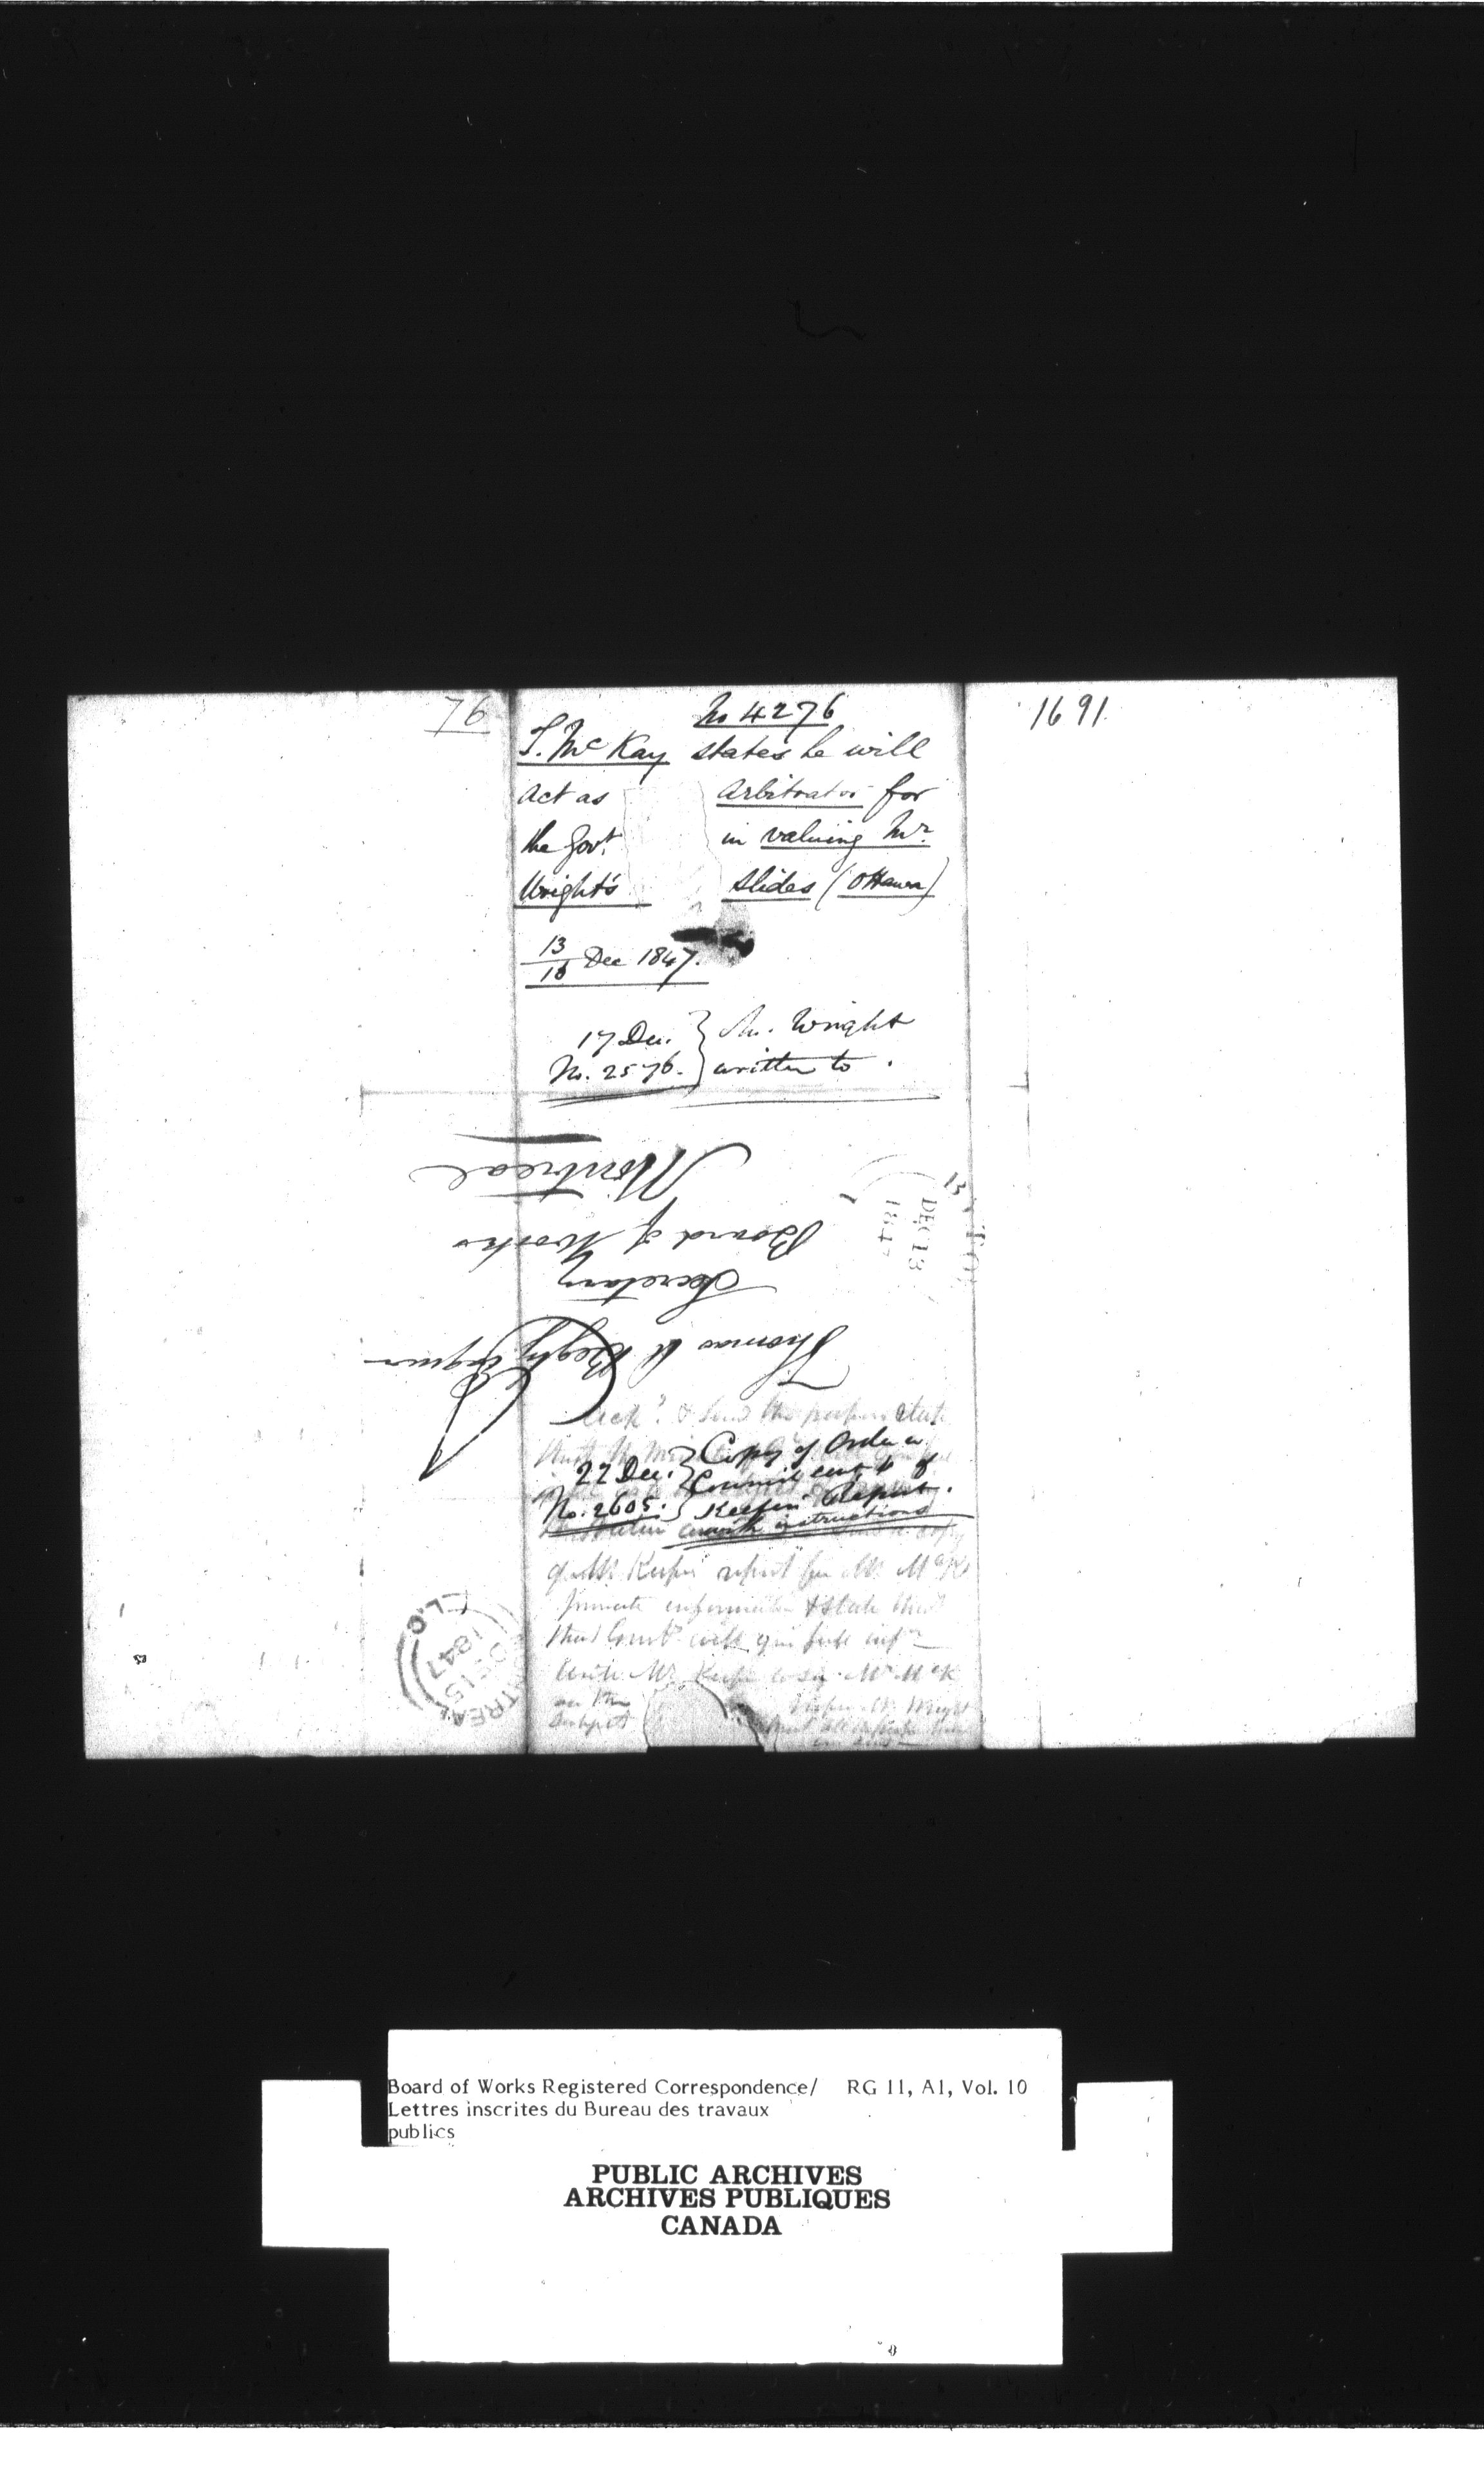 76
No 4276
1691
T. McKay states he will
act as arbitrator for
the Govt. in valuing Mr.
Wright's slides (Ottawa)
13/16 Dec 1847.
17 Dec. } Mr. Wright
No. 2576. } written to.
Montreal
Board of Works
Secretary
Thomas A Begly Esquire
DEC 13
184
Ack. & send the papers state
22 Dec. } Copy of Order in
No. 2605. } Council sent & of
Keefer's Report.
with instructions
copy
of Mr Keefer's report for Mr. McK
private information & state that
that Govt. will give full infn
Write Mr Keefer to see Mr McK
on the
subject
Mr. Wright
MONTREAL
DE 15
1847
L.C
Board of Works Registered Correspondence/ RG 11, A1, Vol. 10
Lettres inscrites du Bureau des travaux
publics
PUBLIC ARCHIVES
ARCHIVES PUBLIQUES
CANADA